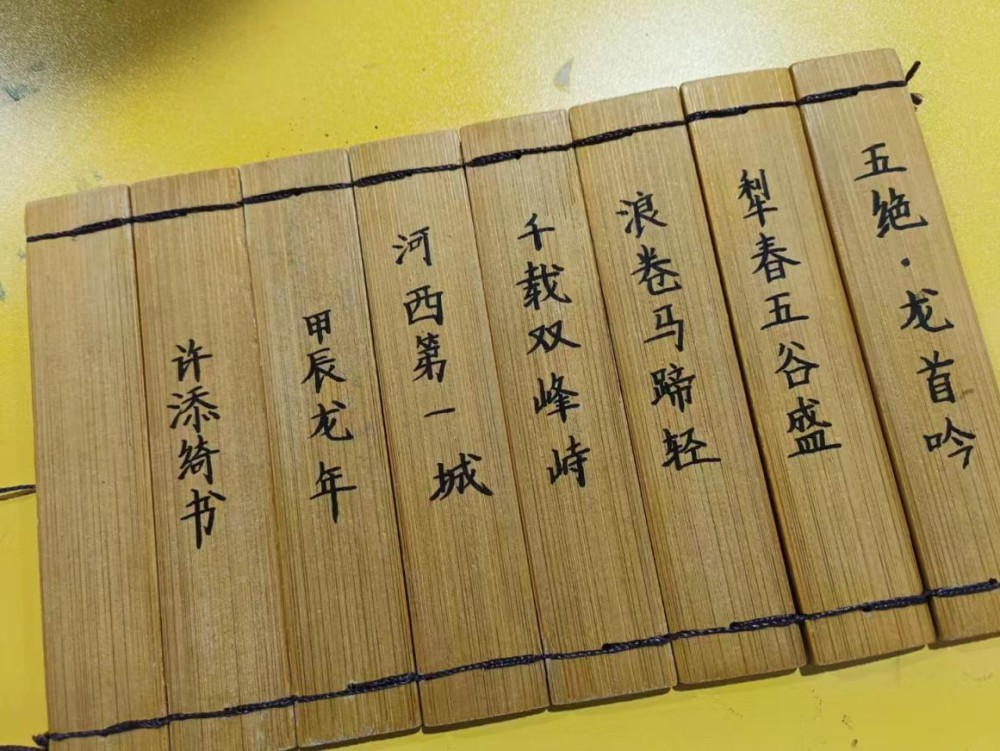 五绝·龙首吟
犁春五谷盛
浪卷马蹄轻
千载双峰峙
河西第一城
甲辰龙年
许添绮书